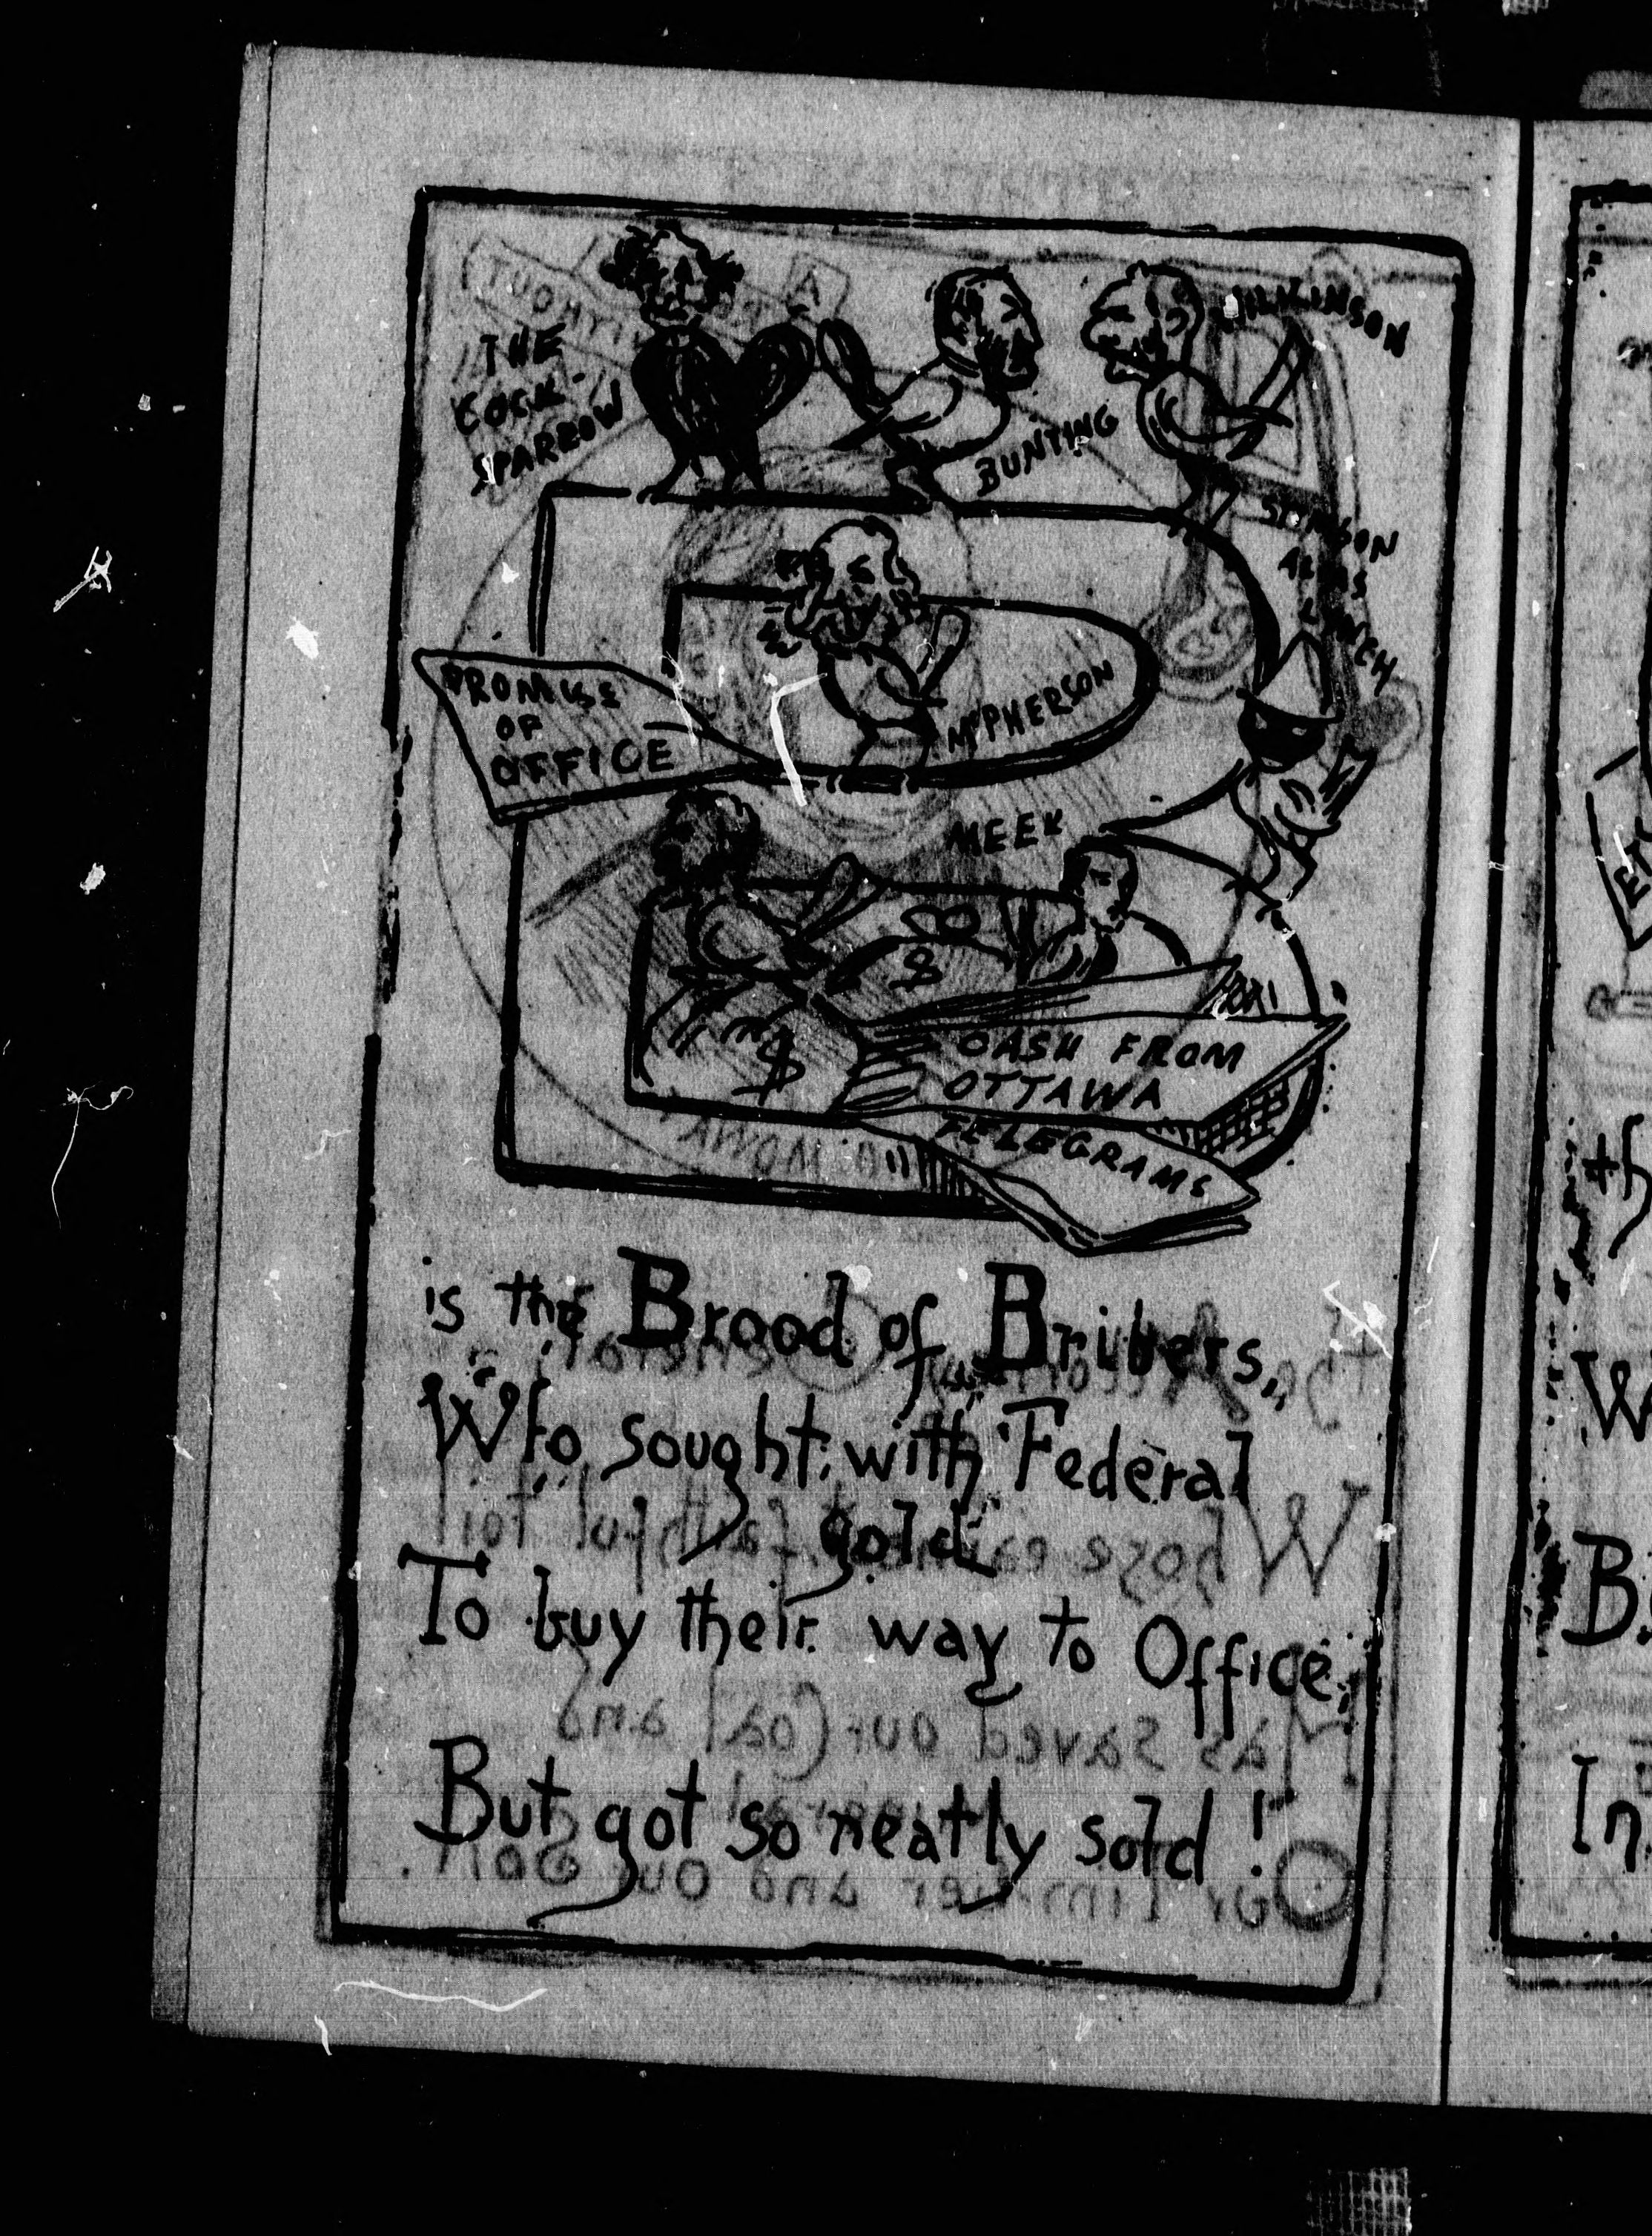 THE
COCK-
SPARROW
WILKINSON
BUNTING
ALIAS
LYNCH
PROMISE
OF
OFFICE
McPHERSON
MEEK
$
$
CASH FROM
OTTAWA
TELEGRAMS
is the Brood of Bribers,
Who sought with Federal
gold
To buy their way to Office,
But got so neatly sold!